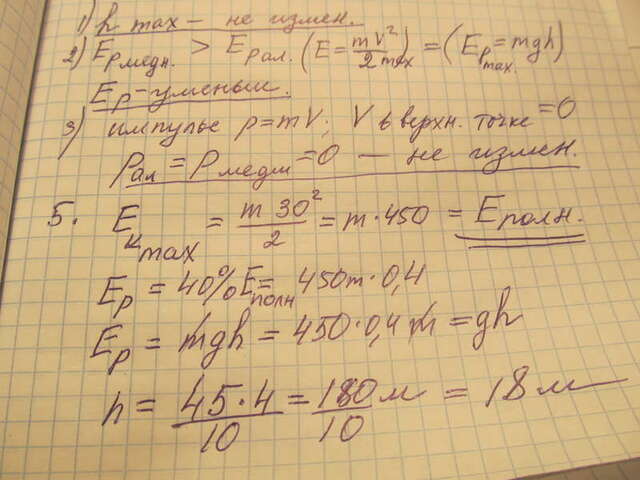 1) h max – не измен.
2) Eр медн. > Eр ал. (E = mV²/2 max) = (Eр max. = mgh)
Eр – уменьш.
3) импульс p = mV; V в верхн. точке = 0
pал = pмедн = 0 — не измен.
5. Eк max = m 30²/2 = m·450 = Eполн.
Eр = 40% Eполн = 450m·0,4
Eр = mgh = 450·0,4 m = gh
h = 45·4/10 = 180/10 м = 18 м